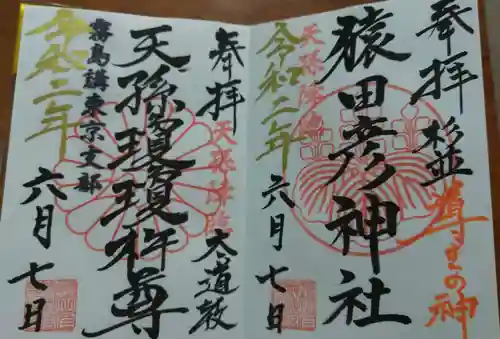 奉拝 杉並
導きの神
猿田彦神社
天孫降臨
令和二年
六月七日
奉拝
天孫降臨
太道敎
天孫瓊瓊杵尊
霧島講東京支部
令和二年
六月七日